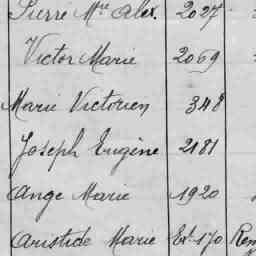 Pierre Mie Alex. 2027
Victor Marie 2069
Marie Victorien 348
Joseph Eugène 2181
Ange Marie 1920
Aristide Marie Ex. 170 Ren